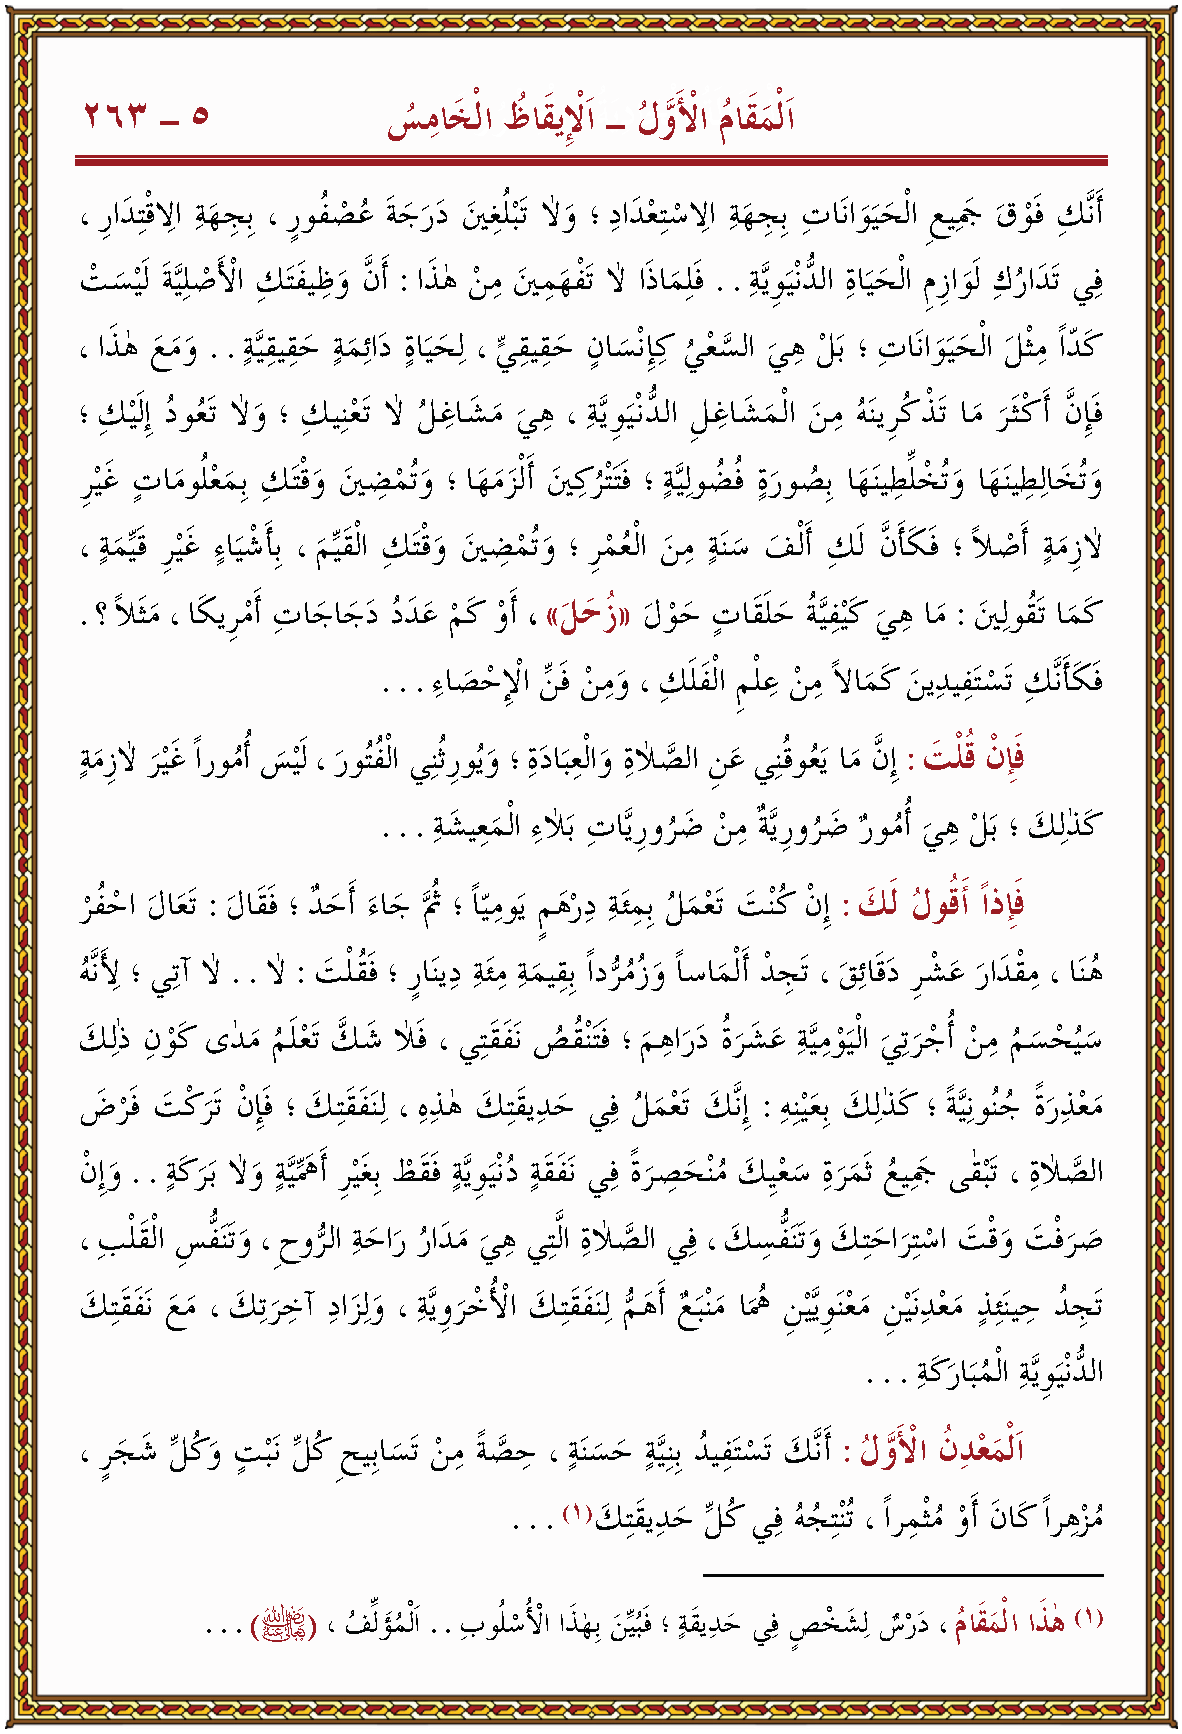 اَلْمَقَامُ الْأَوَّلُ ـ اَلْإِيقَاظُ الْخَامِسُ ٥ ـ ٢٦٣
أَنَّكِ فَوْقَ جَمِيعِ الْحَيَوَانَاتِ بِجِهَةِ الِاسْتِعْدَادِ ؛ وَلاٰ تَبْلُغِينَ دَرَجَةَ عُصْفُورٍ ، بِجِهَةِ الِاقْتِدَارِ ،
فِي تَدَارُكِ لَوَازِمِ الْحَيَاةِ الدُّنْيَوِيَّةِ . . فَلِمَاذَا لاٰ تَفْهَمِينَ مِنْ هٰذَا : أَنَّ وَظِيفَتَكِ الْأَصْلِيَّةَ لَيْسَتْ
كَدّاً مِثْلَ الْحَيَوَانَاتِ ؛ بَلْ هِيَ السَّعْيُ كَإِنْسَانٍ حَقِيقِيٍّ ، لِحَيَاةٍ دَائِمَةٍ حَقِيقِيَّةٍ . . وَمَعَ هٰذَا ،
فَإِنَّ أَكْثَرَ مَا تَذْكُرِينَهُ مِنَ الْمَشَاغِلِ الدُّنْيَوِيَّةِ ، هِيَ مَشَاغِلُ لاٰ تَعْنِيكِ ؛ وَلاٰ تَعُودُ إِلَيْكِ ؛
وَتُخَالِطِينَهَا وَتُخْلِّطِينَهَا بِصُورَةٍ فُضُولِيَّةٍ ؛ فَتَتْرُكِينَ أَلْزَمَهَا ؛ وَتُمْضِينَ وَقْتَكِ بِمَعْلُومَاتٍ غَيْرِ
لاٰزِمَةٍ أَصْلاً ؛ فَكَأَنَّ لَكِ أَلْفَ سَنَةٍ مِنَ الْعُمْرِ ؛ وَتُمْضِينَ وَقْتَكِ الْقَيِّمَ ، بِأَشْيَاءٍ غَيْرِ قَيِّمَةٍ ،
كَمَا تَقُولِينَ : مَا هِيَ كَيْفِيَّةُ حَلَقَاتٍ حَوْلَ «زُحَلَ» ، أَوْ كَمْ عَدَدُ دَجَاجَاتِ أَمْرِيكَا ، مَثَلاً ؟ .
فَكَأَنَّكِ تَسْتَفِيدِينَ كَمَالاً مِنْ عِلْمِ الْفَلَكِ ، وَمِنْ فَنِّ الْإِحْصَاءِ . . .
فَإِنْ قُلْتَ : إِنَّ مَا يَعُوقُنِي عَنِ الصَّلاٰةِ وَالْعِبَادَةِ ؛ وَيُورِثُنِي الْفُتُورَ ، لَيْسَ أُمُوراً غَيْرَ لاٰزِمَةٍ
كَذٰلِكَ ؛ بَلْ هِيَ أُمُورٌ ضَرُورِيَّةٌ مِنْ ضَرُورِيَّاتِ بَلاٰءِ الْمَعِيشَةِ . . .
فَإِذاً أَقُولُ لَكَ : إِنْ كُنْتَ تَعْمَلُ بِمِئَةِ دِرْهَمٍ يَومِيّاً ؛ ثُمَّ جَاءَ أَحَدٌ ؛ فَقَالَ : تَعَالَ احْفُرْ
هُنَا ، مِقْدَارَ عَشْرِ دَقَائِقَ ، تَجِدْ أَلْمَاساً وَزُمُرُّداً بِقِيمَةِ مِئَةِ دِينَارٍ ؛ فَقُلْتَ : لاٰ . . لاٰ آتِي ؛ لِأَنَّهُ
سَيُحْسَمُ مِنْ أُجْرَتِيَ الْيَوْمِيَّةِ عَشَرَةُ دَرَاهِمَ ؛ فَتَنْقُصُ نَفَقَتِي ، فَلاٰ شَكَّ تَعْلَمُ مَدٰى كَوْنِ ذٰلِكَ
مَعْذِرَةً جُنُونِيَّةً ؛ كَذٰلِكَ بِعَيْنِهِ : إِنَّكَ تَعْمَلُ فِي حَدِيقَتِكَ هٰذِهِ ، لِنَفَقَتِكَ ؛ فَإِنْ تَرَكْتَ فَرْضَ
الصَّلاٰةِ ، تَبْقٰى جَمِيعُ ثَمَرَةِ سَعْيِكَ مُنْحَصِرَةً فِي نَفَقَةٍ دُنْيَوِيَّةٍ فَقَطْ بِغَيْرِ أَهَمِّيَّةٍ وَلاٰ بَرَكَةٍ . . وَإِنْ
صَرَفْتَ وَقْتَ اسْتِرَاحَتِكَ وَتَنَفُّسِكَ ، فِي الصَّلاٰةِ الَّتِي هِيَ مَدَارُ رَاحَةِ الرُّوحِ ، وَتَنَفُّسِ الْقَلْبِ ،
تَجِدُ حِينَئِذٍ مَعْدِنَيْنِ مَعْنَوِيَّيْنِ هُمَا مَنْبَعٌ أَهَمُّ لِنَفَقَتِكَ الْأُخْرَوِيَّةِ ، وَلِزَادِ آخِرَتِكَ ، مَعَ نَفَقَتِكَ
الدُّنْيَوِيَّةِ الْمُبَارَكَةِ . . .
اَلْمَعْدِنُ الْأَوَّلُ : أَنَّكَ تَسْتَفِيدُ بِنِيَّةٍ حَسَنَةٍ ، حِصَّةً مِنْ تَسَابِيحِ كُلِّ نَبْتٍ وَكُلِّ شَجَرٍ ،
مُزْهِراً كَانَ أَوْ مُثْمِراً ، تُنْتِجُهُ فِي كُلِّ حَدِيقَتِكَ(١) . . .
(١) هٰذَا الْمَقَامُ ، دَرْسٌ لِشَخْصٍ فِي حَدِيقَةٍ ؛ فَبُيِّنَ بِهٰذَا الْأُسْلُوبِ . . اَلْمُؤَلِّفُ ، (رضي الله عنه) . . .